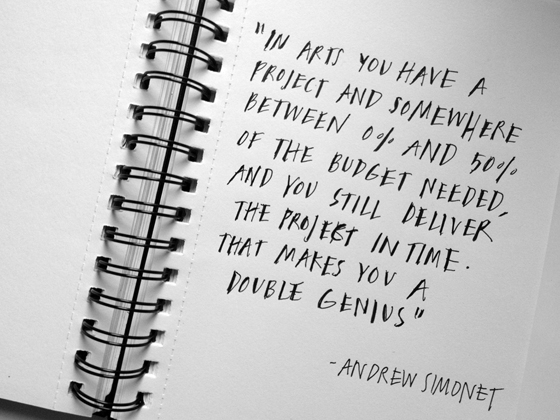 "IN ARTS YOU HAVE A
PROJECT AND SOMEWHERE
BETWEEN 0% AND 50%
OF THE BUDGET NEEDED,
AND YOU STILL DELIVER
THE PROJECT IN TIME.
THAT MAKES YOU A
DOUBLE GENIUS"
-ANDREW SIMONET